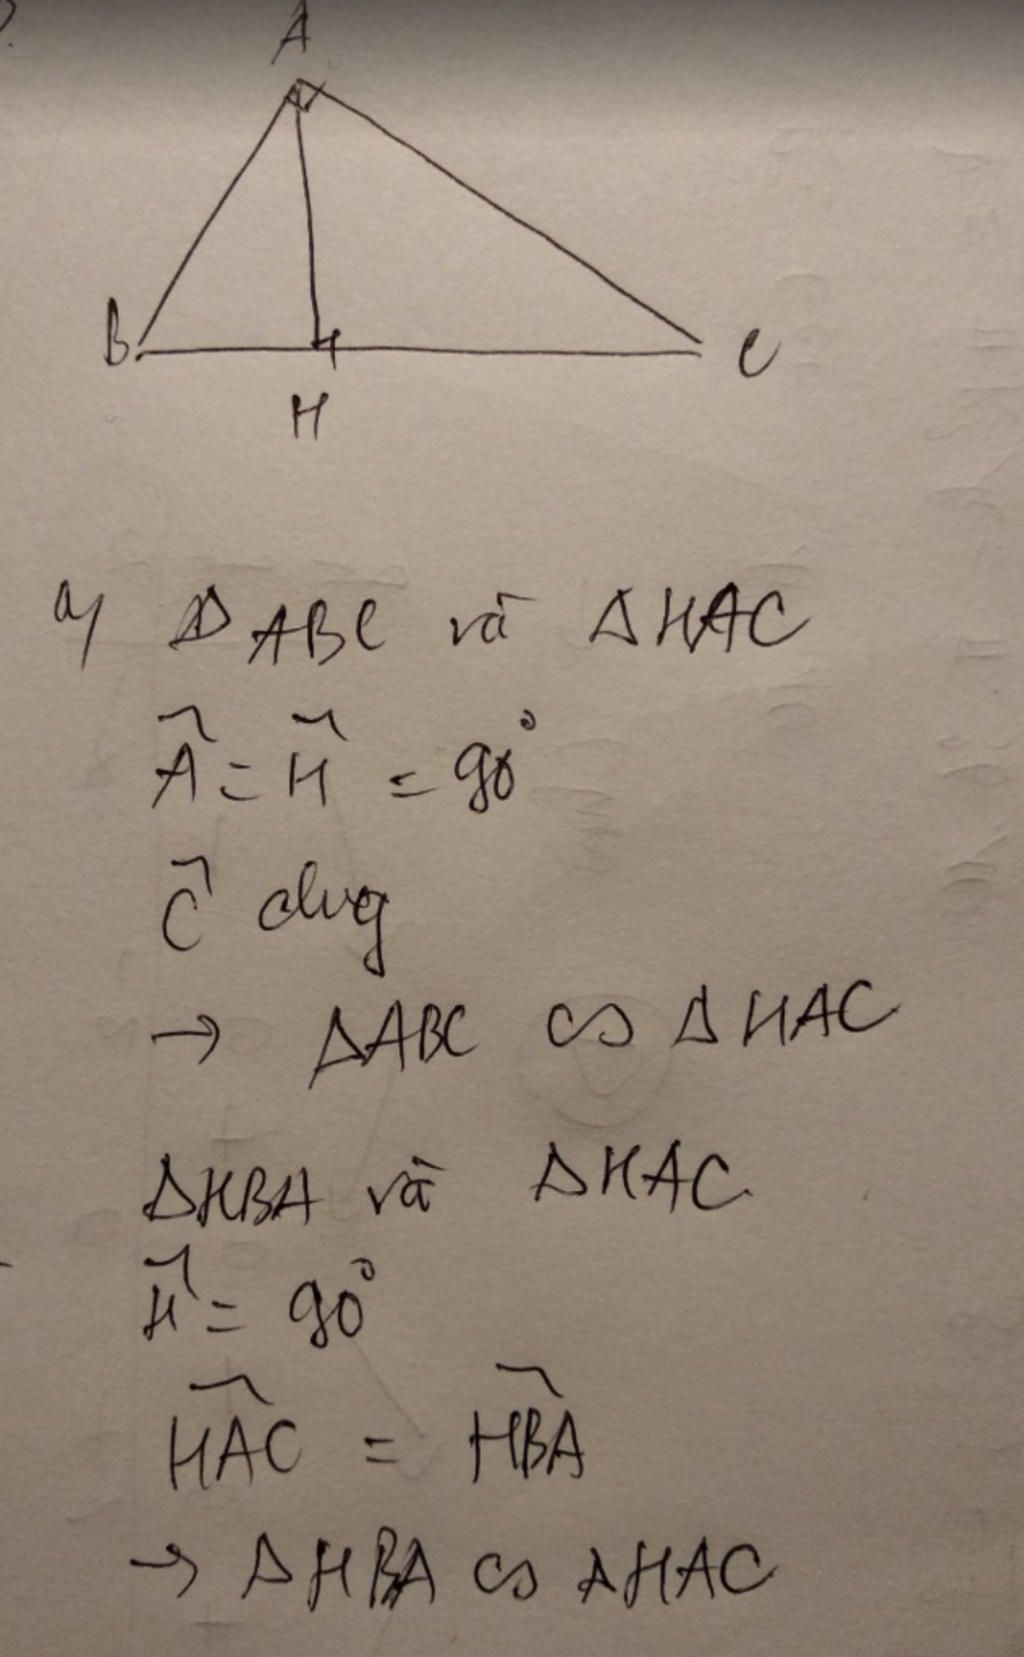 A
B
C
H
a) ΔABC và ΔHAC
Â = Ĥ = 90°
Ĉ chug
→ ΔABC ∽ ΔHAC
ΔHBA và ΔHAC
Ĥ = 90°
HAC = HBA
→ ΔHBA ∽ ΔHAC